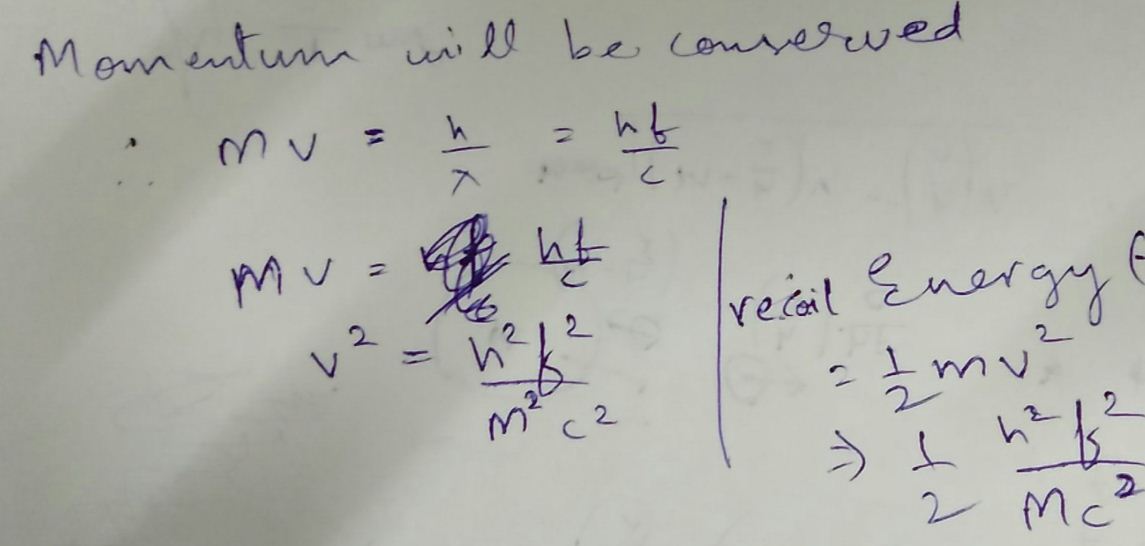 Momentum will be conserved
∴ mv = h/λ = hf/c
mv = hf/c
v² = h²f²/m²c²
recoil Energy (
= 1/2 mv²
⇒ 1/2 h²f²/Mc²